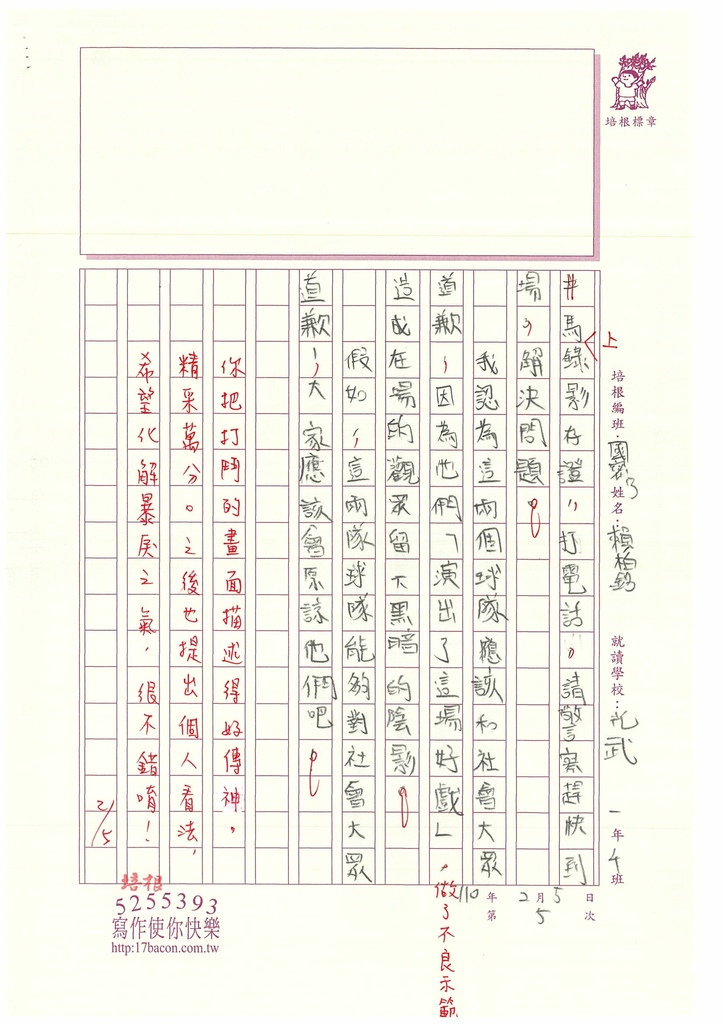 培根標章
培根編班：
姓名：賴柏銘
就讀學校：光武
一年4班
110年2月5日
第5次
井馬錄影存證，打電話，請警察趕快到
上
場，解決問題。
我認為這兩個球隊應該和社會大眾
道歉，因為他們「演出了這場好戲」
，做了不良示範
造成在場的觀眾留下黑暗的陰影。
假如，這兩隊球隊能夠對社會大眾
道歉，大家應該會原諒他們吧！
你把打鬥的畫面描述得好傳神，
精采萬分。之後也提出個人看法，
希望化解暴戾之氣，很不錯唷！
2/5
培根
5255393
寫作使你快樂
http:17bacon.com.tw